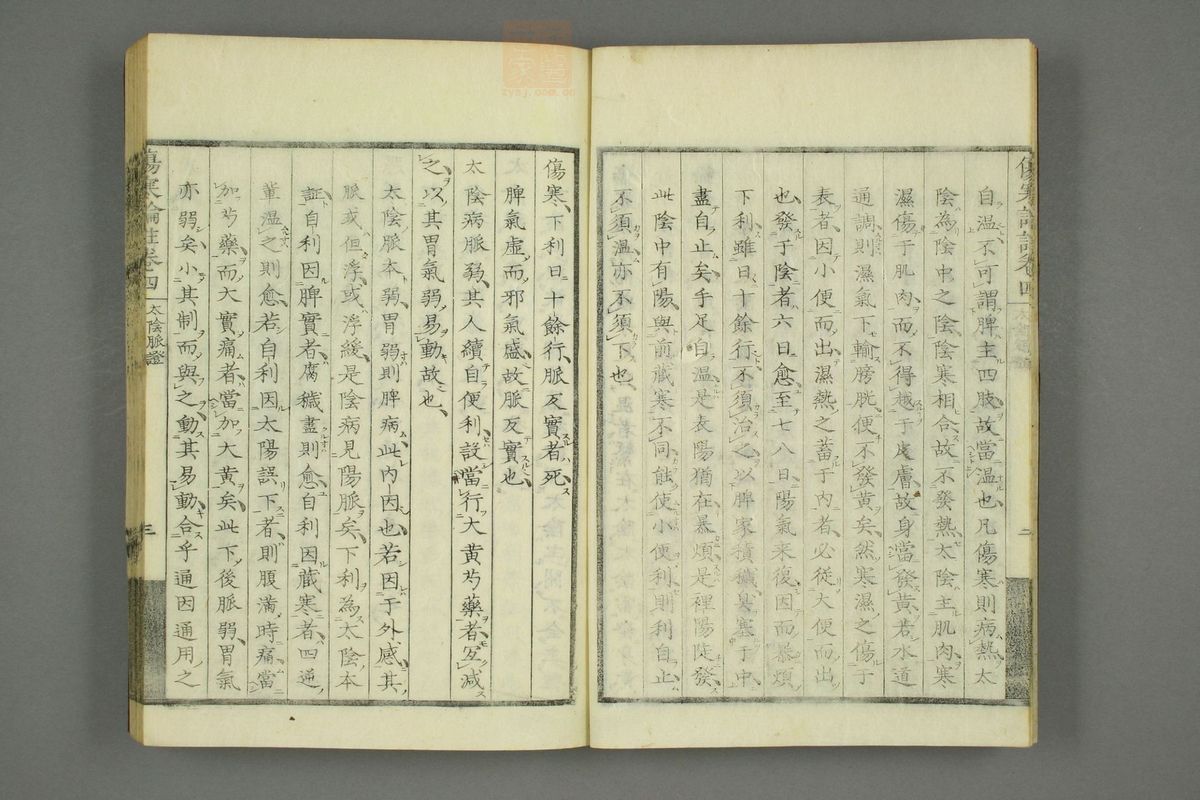 自溫不可謂脾主四肢故當溫也凡傷寒則病熱太
陰為陰中之陰陰寒相合故不發熱太陰主肌肉寒
濕傷于肌肉而不得越于皮膚故身當發黃若水道
通調則濕氣下輸膀胱便不發黃矣然寒濕之傷于
表者因小便而出濕熱之蓄于內者必從大便而出
也發于陰者六日愈至七八日陽氣來復因而暴煩
下利雖日十餘行不須治之以脾家積穢臭塞于中
盡自止矣手足自溫是表陽猶在暴煩是裡陽陡發
此陰中有陽與前藏寒不同能使小便利則利自止
不須溫亦不須下也
傷寒下利日十餘行脈反實者死
脾氣虛而邪氣盛故脈反實也
太陰病脈弱其人續自便利設當行大黃芍藥者宜減
之以其胃氣弱易動故也
太陰脈本弱胃弱則脾病此內因也若因于外感其
脈或但浮或浮緩是陰病見陽脈矣下利為太陰本
証自利因脾實者腐穢盡則愈自利因藏寒者四逆
輩溫之則愈若自利因太陽誤下者則腹滿時痛當
加芍藥而大實痛者當加大黃矣此下後脈弱胃氣
亦弱矣小其制而與之動其易動合乎通因通用之
傷寒論註卷四
太陰脈證
三
傷寒論註卷四
二
zysj.com.cn